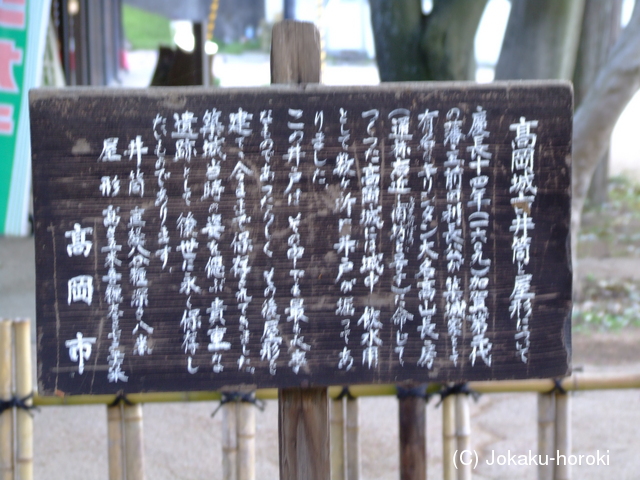 高岡城の井筒と屋形について
慶長十四年(一六〇九)加賀第二代
の藩主前田利長公が築城家として
有名なキリシタン大名高山長房
(通称右近と南坊と言う)に命じて
つくった高岡城には城中飲水用
として数ヶ所の井戸が掘ってあ
りました
この井戸はその中でも最も
なものであったらしくその後屋形を
建て今日まで保存されてきました
築城当時の姿を偲ぶ貴重な
遺跡として後世に永く保存し
たいものであります
井筒
屋形
高岡市
(C) Jokaku-horoki